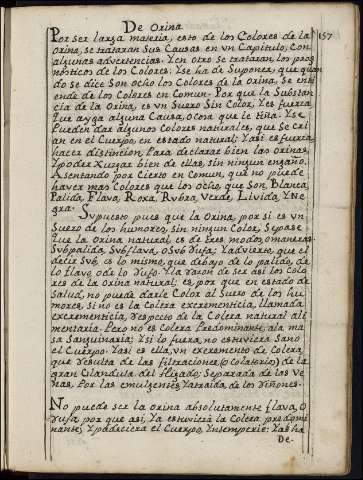 De Orina
157
Por ser larga materia, esto de los Colores de la
Orina, se trataran sus Causas en vn Capitulo, Con
algunas advertencias. Y en otro se trataran, los prog
nosticos de los Colores: Y se ha de Suponer, que quan
do se dice Son ocho los Colores de la Orina, Se enti
ende de los Colores en Comun. Por que la Substan
cia de la Orina, es vn Suero Sin Color, Y es fuerza
que ayga alguna Causa, ò cosa que le tiña. Y se
Pueden dar algunos Colores naturales, que Se cri
an en el Cuerpo, en estado natural; Y asi es fuerza
hacer distincion, Para declarar bien las Orinas,
Y poder Xuzgar bien de ellas, sin ningun engaño.
Asentando por Cierto en Comun, que no puede
haver mas Colores que los ocho, que Son, Blanca,
Palida, Flava, Roxa, Rubra, Verde, Livida, Y Ne
gra.
Supuesto pues que la Orina, por si es vn
Suero de los humores, sin ningun Color, Sepase
que la Orina natural es de tres modos, o maneras
Subpalida, Subflava, o Sub rufa; Y advierto, que el
decir Sub, es lo mismo, que debajo de lo palido, de
lo flavo, ò de lo rufo. Y la razon de ser asi los Colo
res de la Orina natural; es, por que en estado de
Salud, no puede darle Color al Suero de los hu
mores, Si no es la Colera excrementicia, llamada
excrementicia, respecto de la Colera natural ali
mentaria. Pero no es Colera Predominante, a la ma
sa Sanguinaria; Y si lo fuera, no estuviera Sano
el Cuerpo. Y asi es ella, vn excremento de Colera,
que resulta de las filtraciones, (o Colatorio) de la
gran Glandula del Higado; Separada de las ve
nas, Por las emulgentes, Y atraida, de los riñones.
No puede ser la Orina absolutamente flava, O
rufa, por que asi, Ya estuviera la Colera predomi
nante; Y padeciera el Cuerpo, Yntemperie; Y asi ha
De-